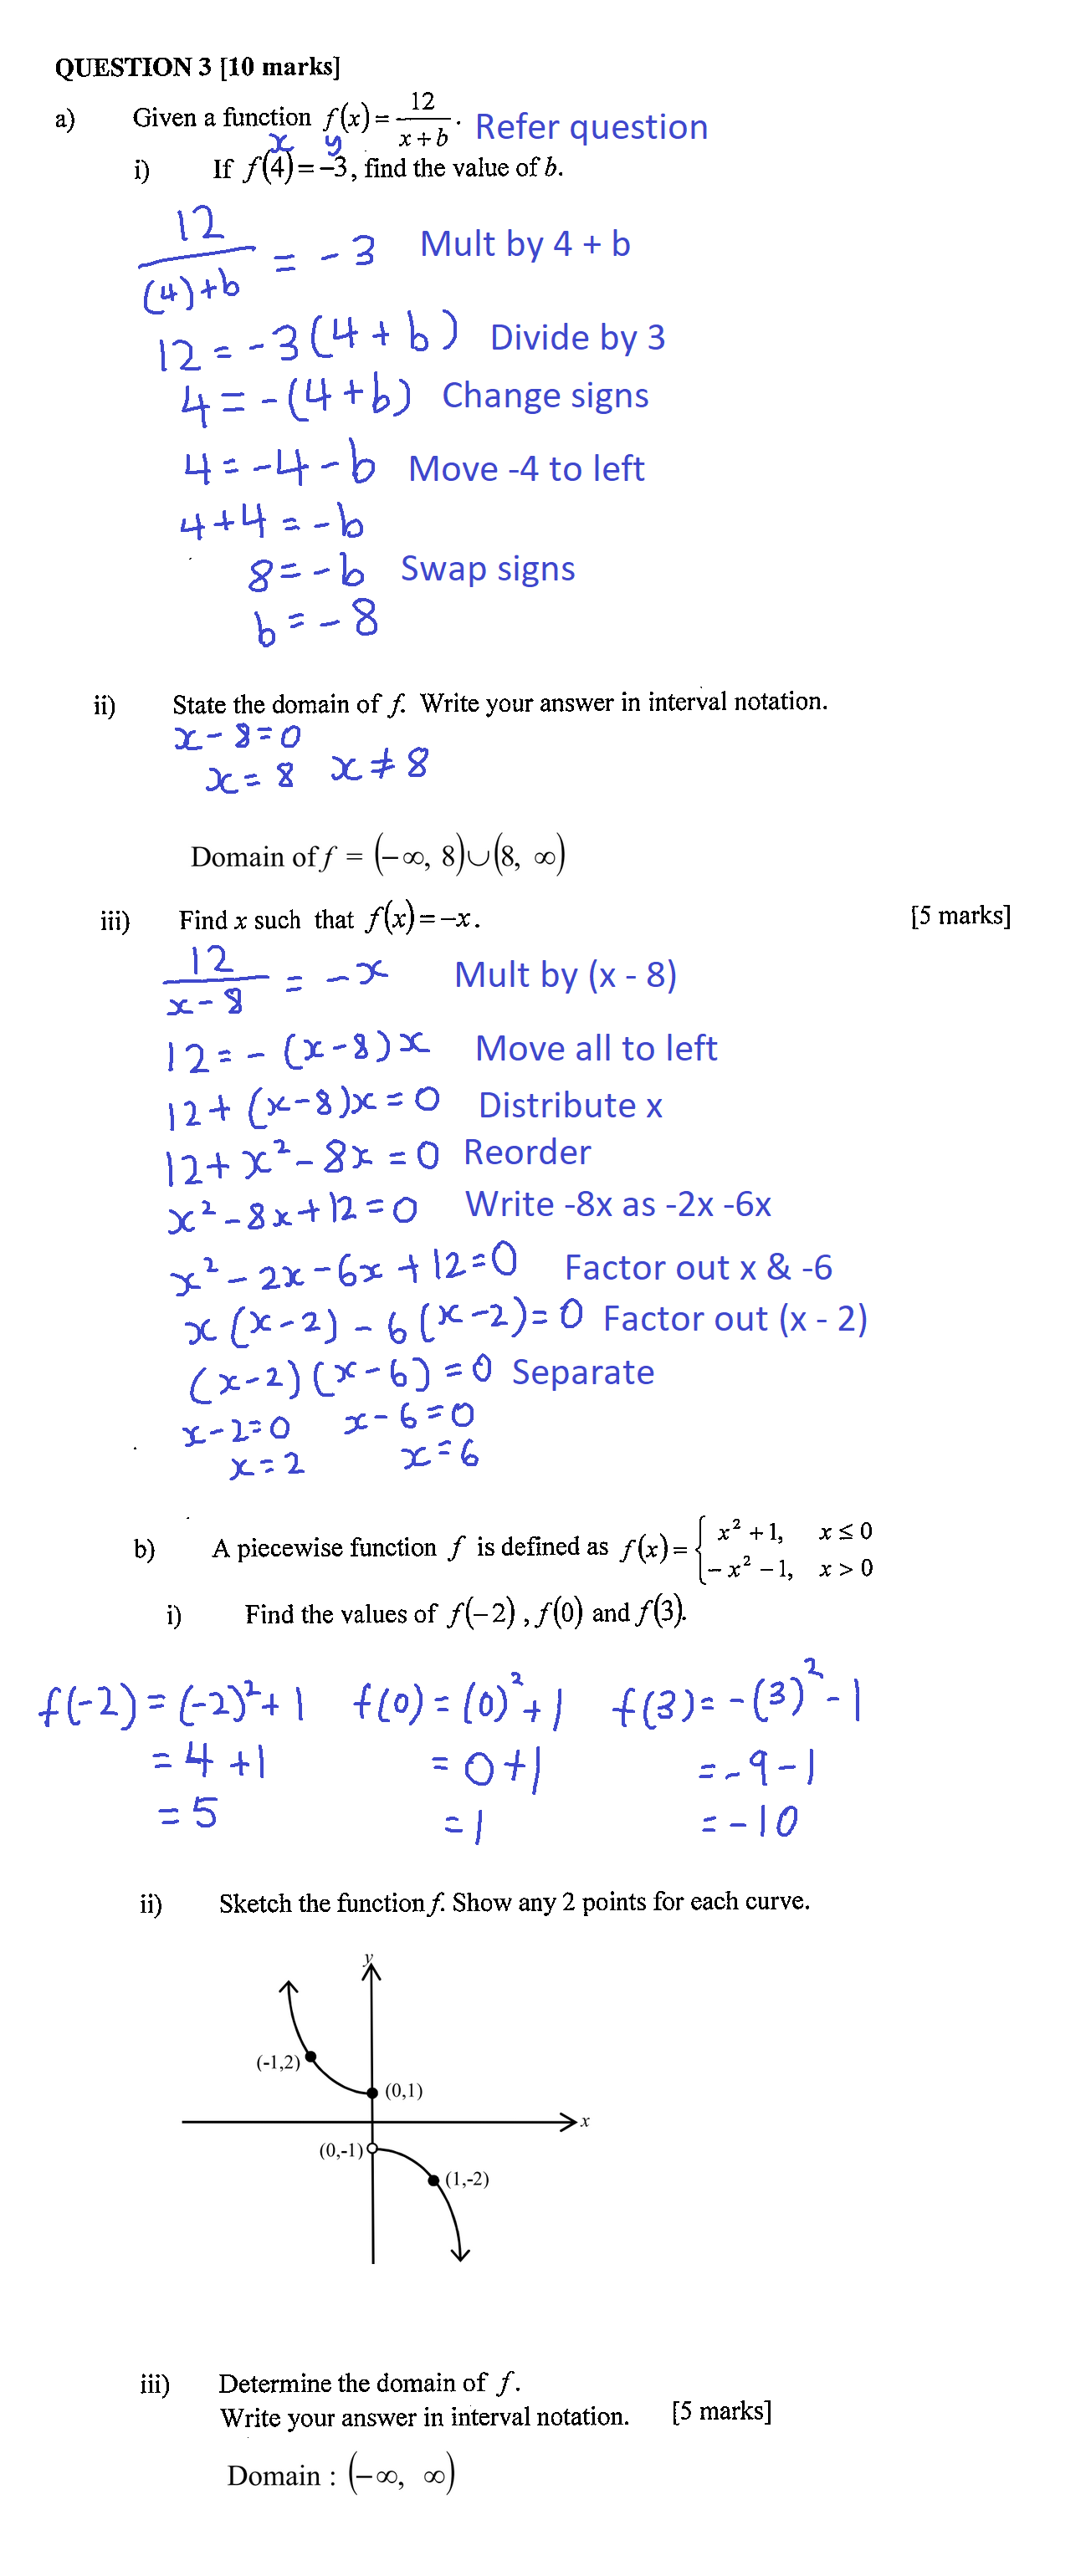 QUESTION 3 [10 marks]
a) Given a function f(x) = 12/(x + b). Refer question
x y
i) If f(4) = -3, find the value of b.
12/((4)+b) = -3 Mult by 4 + b
12 = -3(4 + b) Divide by 3
4 = -(4+b) Change signs
4 = -4 - b Move -4 to left
4+4 = -b
8 = -b Swap signs
b = -8
ii) State the domain of f. Write your answer in interval notation.
x - 8 = 0
x = 8 x ≠ 8
Domain of f = (-∞, 8)∪(8, ∞)
iii) Find x such that f(x) = -x. [5 marks]
12/(x-8) = -x Mult by (x - 8)
12 = -(x-8)x Move all to left
12+(x-8)x = 0 Distribute x
12+x² - 8x = 0 Reorder
x² - 8x + 12 = 0 Write -8x as -2x -6x
x² - 2x - 6x + 12 = 0 Factor out x & -6
x(x-2) - 6(x-2) = 0 Factor out (x - 2)
(x-2)(x-6) = 0 Separate
x-2=0 x-6=0
x=2 x=6
b) A piecewise function f is defined as f(x) = { x² + 1, x ≤ 0
-x² - 1, x > 0
i) Find the values of f(-2), f(0) and f(3).
f(-2) = (-2)²+1 f(0) = (0)²+1 f(3) = -(3)²-1
= 4 +1 = 0+1 = -9-1
= 5 = 1 = -10
ii) Sketch the function f. Show any 2 points for each curve.
y
(-1,2)
(0,1)
x
(0,-1)
(1,-2)
iii) Determine the domain of f.
Write your answer in interval notation. [5 marks]
Domain : (-∞, ∞)